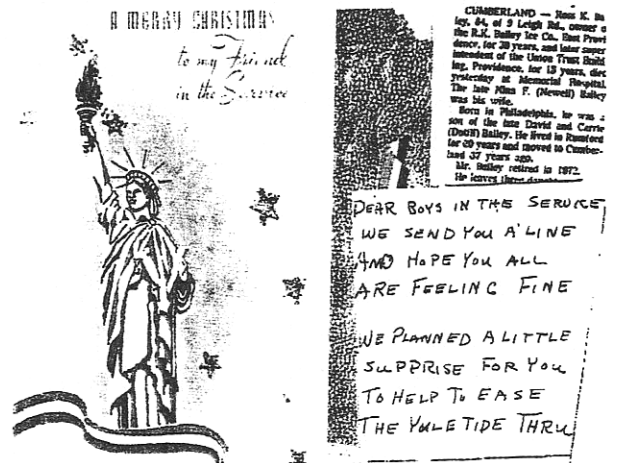 A MERRY CHRISTMAS
to my Friend
in the Service
CUMBERLAND — Ross K. Ba
ley, 84, of 9 Leigh Rd., owner o
the R.K. Bailey Ice Co., East Provi
dence, for 20 years, and later super
intendent of the Union Trust Build
ing, Providence, for 15 years, died
yesterday at Memorial Hospital.
The late Nina F. (Newell) Bailey
was his wife.
Born in Philadelphia, he was a
son of the late David and Carrie
Bailey. He lived in Rumford
for 20 years and moved to Cumber-
land 37 years ago.
Mr. Bailey retired in 1972.
He leaves three
DEAR BOYS IN THE SERVICE
WE SEND YOU A LINE
AND HOPE YOU ALL
ARE FEELING FINE
WE PLANNED A LITTLE
SUPPRISE FOR YOU
TO HELP TO EASE
THE YULETIDE THRU